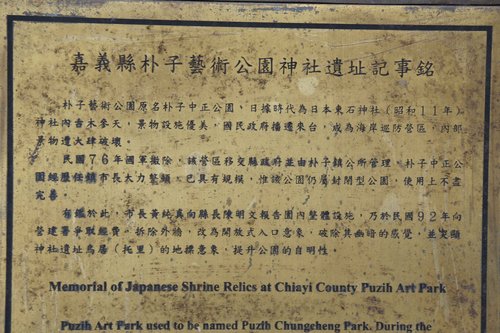 嘉義縣朴子藝術公園神社遺址記事銘
朴子藝術公園原名朴子中正公園，日據時代為日本東石神社（昭和11年）
神社內古木參天，景物設施優美，國民政府播遷來台，成為海岸巡防營區，內部
景物遭大肆破壞。
民國76年國軍撤除，該營區移交縣政府並由朴子鎮公所管理。朴子中正公
園經歷任鎮市長大力整頓，已具有規模，惟該公園仍屬封閉型公園，使用上不盡
完善。
有鑑於此，市長黃純真向縣長陳明文報告園內整體設施，乃於民國92年向
營建署爭取經費，拆除外牆，改為開放式入口意象，破除其幽暗的感覺，並突顯
神社遺址鳥居（托里）的地標意象，提升公園的自明性。
Memorial of Japanese Shrine Relics at Chiayi County Puzih Art Park
Puzih Art Park used to be named Puzih Chungcheng Park. During the